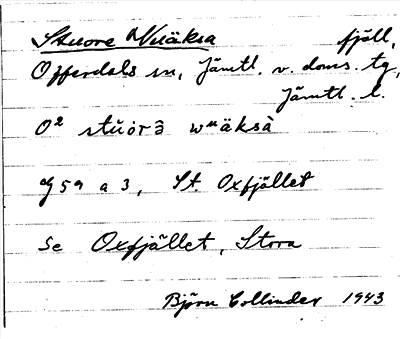 Stuore Wuäksa fjäll,
Offerdals sn, Jämtl. v. doms. tg,
Jämtl. l.
O² stŭorə̄ wᵘäksà
G 59 a 3, St. Oxfjället
Se Oxfjället, Stora
Björn Collinder 1943